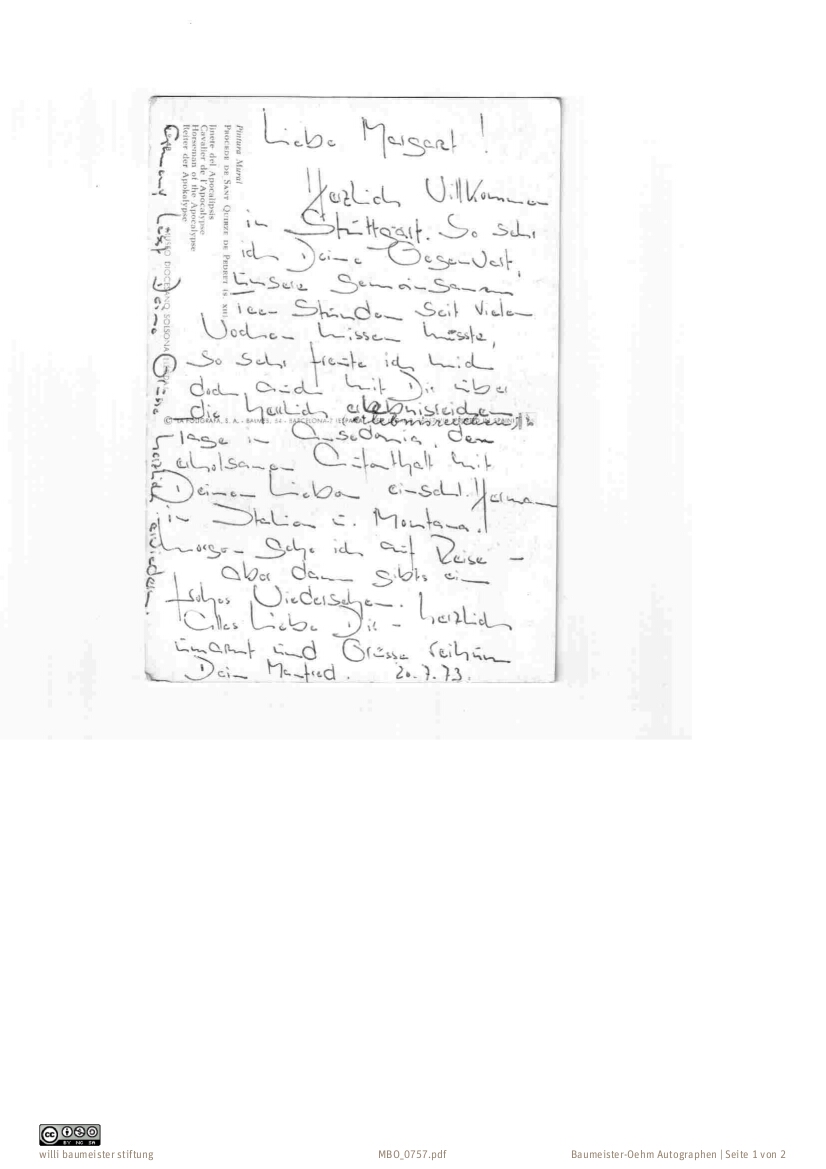 Liebe Margaret!
Herzlich Willkommen
in Stuttgart. So sehr
ich Deine Gegenwart,
unsere gemeinsamen
Stunden seit vielen
Wochen missen musste,
so sehr freute ich mich
doch auch mit Dir über
die herrlich erlebnisreichen
Tage in Ansedonia, den
erholsamen Aufenthalt mit
Deinen Lieben einschl.
in Italien u. Montana.
Morgen gehe ich auf Reise –
aber dann gibts ein
frohes Wiedersehen.
Alles Liebe Dir – herzlich
umarmt und Grüsse reihum
Dein Manfred. 20.7.73.
lässt Deine Grüsse herzlich erwiedern.
Pintura Mural
PROCEDE DE SANT QUIRZE DE PEDRET (S. XII)
Jinete del Apocalipsis
Cavalier de l'Apocalypse
Horseman of the Apocalypse
Reiter der Apokalypse
MUSEO DIOCESANO, SOLSONA
© LA POLIGRAFA, S. A. - BALMES, 54 - BARCELONA-7
willi baumeister stiftung
MBO_0757.pdf
Baumeister-Oehm Autographen | Seite 1 von 2
cc
BY NC SA